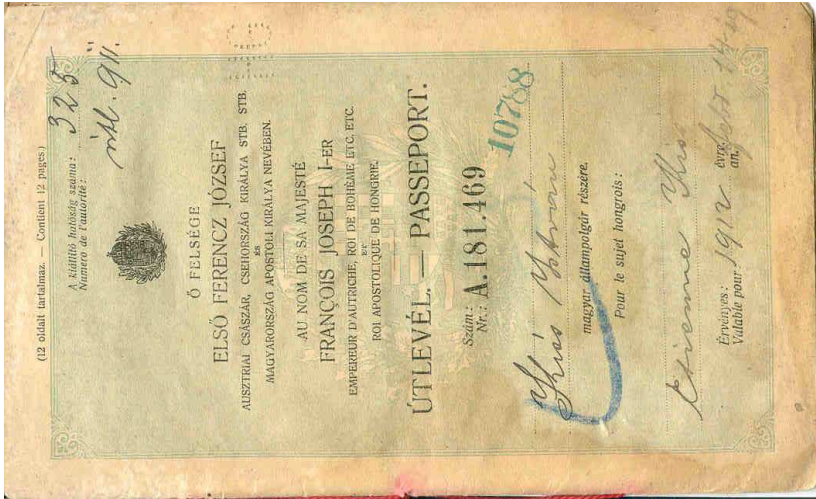 (12 oldalt tartalmaz. — Contient 12 pages)
A kiállító hatóság száma:
Numero de l'autorité:
325
útl. 911.
Ő FELSÉGE
ELSŐ FERENCZ JÓZSEF
AUSZTRIAI CSÁSZÁR, CSEHORSZÁG KIRÁLYA STB. STB.
ÉS
MAGYARORSZÁG APOSTOLI KIRÁLYA NEVÉBEN.
AU NOM DE SA MAJESTÉ
FRANÇOIS JOSEPH I-ER
EMPEREUR D'AUTRICHE, ROI DE BOHÈME ETC. ETC.
ET
ROI APOSTOLIQUE DE HONGRIE.
ÚTLEVÉL. — PASSEPORT.
Szám:
Nr.: A.181.469
10788
Kiss István
magyar állampolgár részére.
Pour le sujet hongrois:
Etienne Kis
Érvényes: évre.
Valable pour 1912 an.